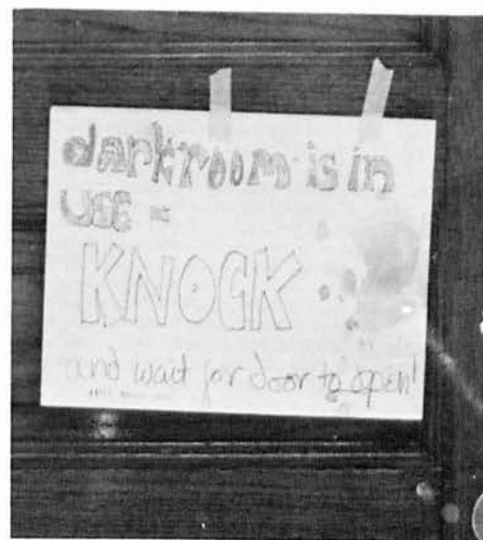 darkroom is in
use =
KNOCK
and wait for door to open!